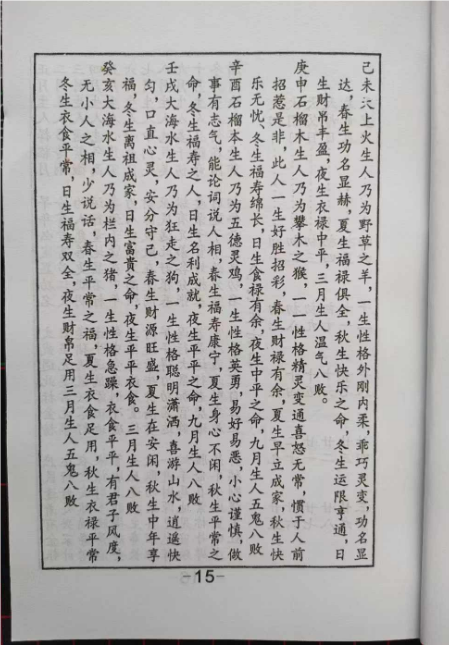 己未天上火生人乃为野草之羊，一生性格外刚内柔，乖巧灵变，功名显
达，春生功名显赫，夏生福禄俱全，秋生快乐之命，冬生运限亨通，日
生财帛丰盈，夜生衣禄中平，三月生人温气八败。
庚申石榴木生人乃为攀木之猴，一一性格精灵变通喜怒无常，惯于人前
招惹是非，此人一生好胜招彩，春生财禄有余，夏生早立成家，秋生快
乐无忧，冬生福寿绵长，日生食禄有余，夜生中平之命，九月生人五鬼八败
辛酉石榴木生人乃为五德灵鸡，一生性格英勇，易好易恶，小心谨慎，做
事有志气，能论词说人相，春生福寿康宁，夏生身心不闲，秋生平常之
命，冬生福寿之人，日生名利成就，夜生平平之命，九月生人八败
壬戌大海水生人乃为狂走之狗，一生性格聪明潇洒，喜游山水，逍遥快
匀，口直心灵，安分守己，春生财源旺盛，夏生在安闲，秋生中年享
福，冬生离祖成家，日生富贵之命，夜生平平衣食。三月生人八败
癸亥大海水生人乃为栏内之猪，一生性格急躁，衣食平平，有君子风度，
无小人之相，少说话，春生平常之福，夏生衣食足用，秋生衣禄平常
冬生衣食平常，日生福寿双全，夜生财帛足用三月生人五鬼八败
-15-